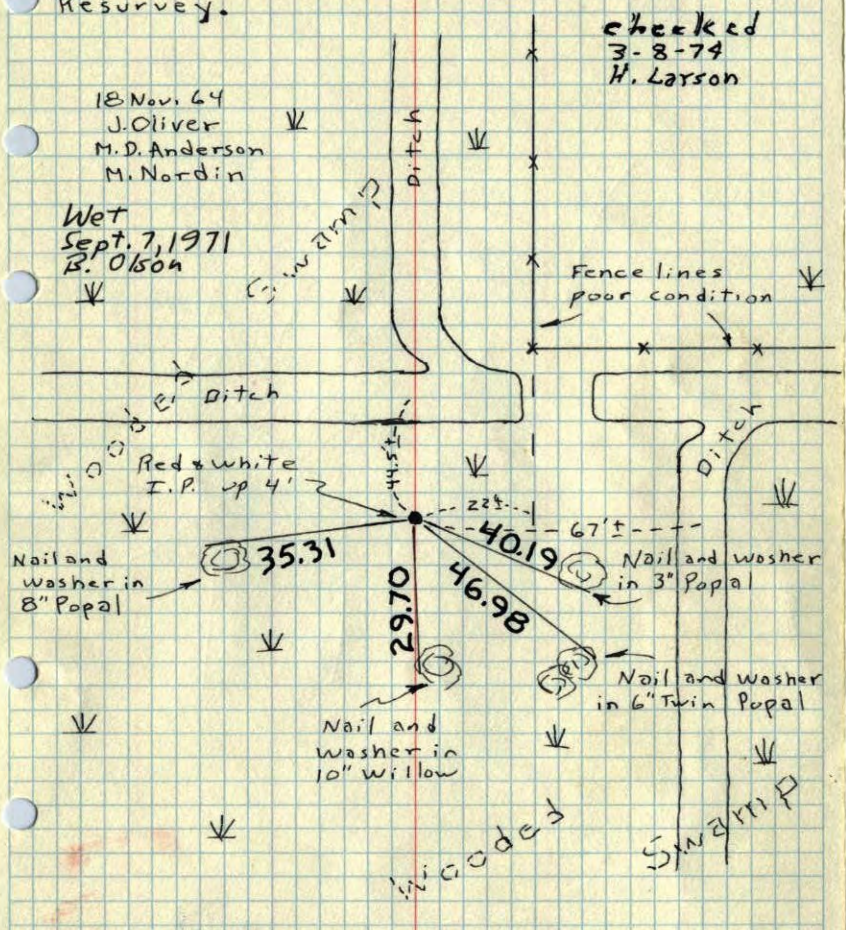 Resurvey.
checked
3-8-74
H. Larson
18 Nov. 64
J. Oliver
M.D. Anderson
M. Nordin
Wet
Sept. 7, 1971
B. Olson
Swamp
Ditch
Fence lines
poor condition
Wooded
Ditch
Ditch
Red & white
I.P. up 4'
44.5'±
22±
67'±
35.31
29.70
40.19
46.98
Nail and
washer in
8" Popal
Nail and washer
in 3" Popal
Nail and washer
in 6" Twin Popal
Nail and
washer in
10" Willow
Wooded
Swamp